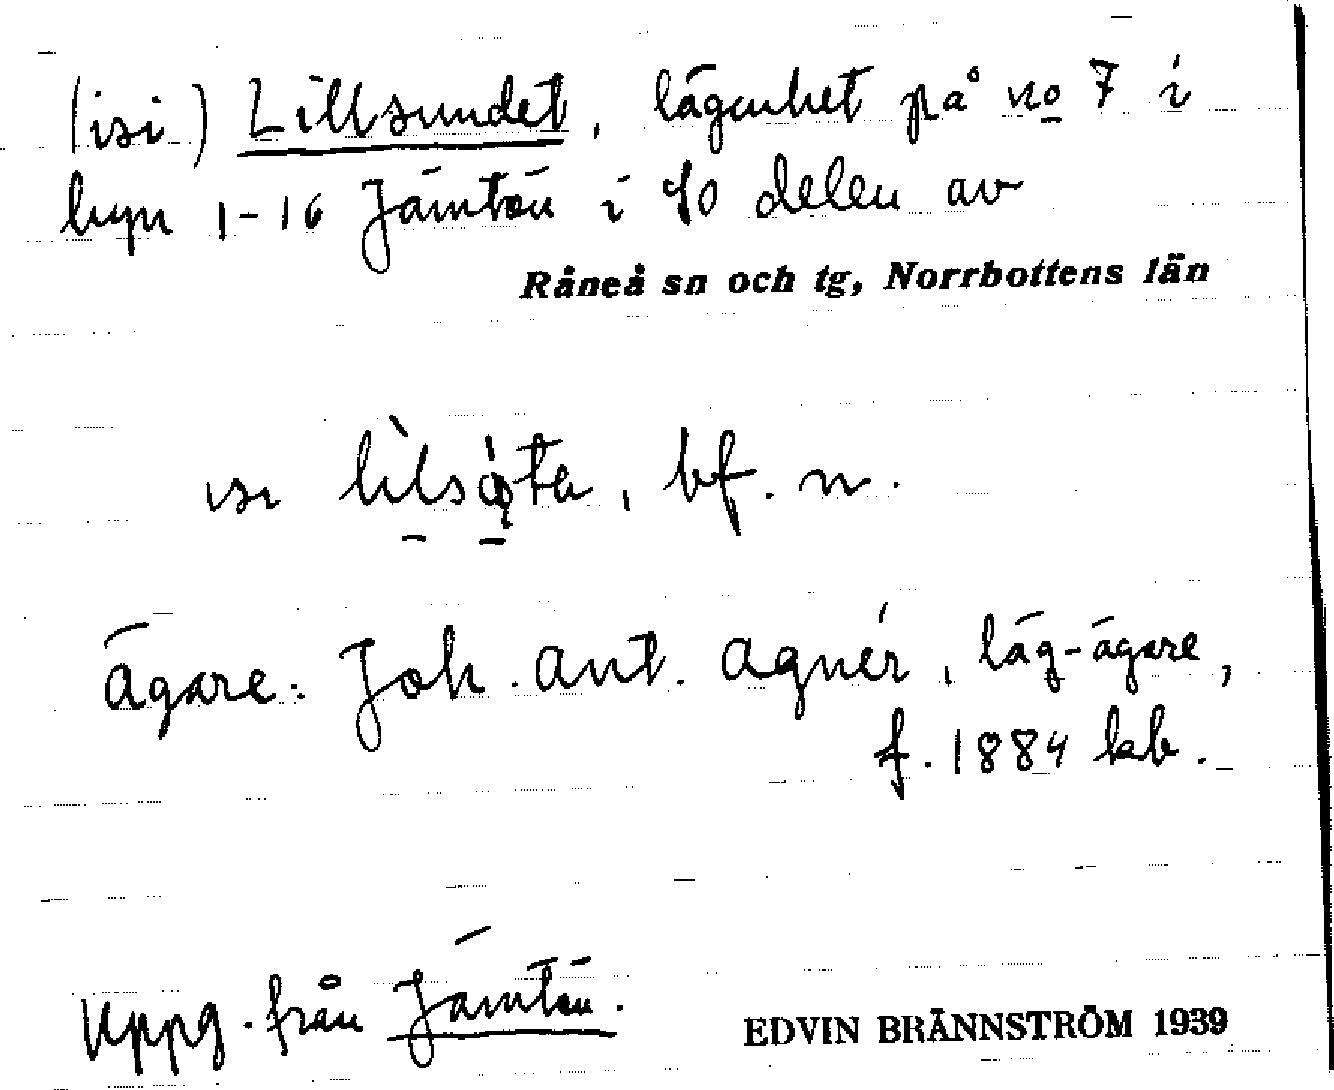 (isi) Lillsundet, lägenhet på no 7 i
byn 1-16 Jämtön i SO delen av
Råneå sn och tg, Norrbottens län
isi bf. n.
ägare: Joh. Ant. Agnér, läg-ägare,
f. 1884 kb.
Uppg. från Jämtön.
EDVIN BRÄNNSTRÖM 1939